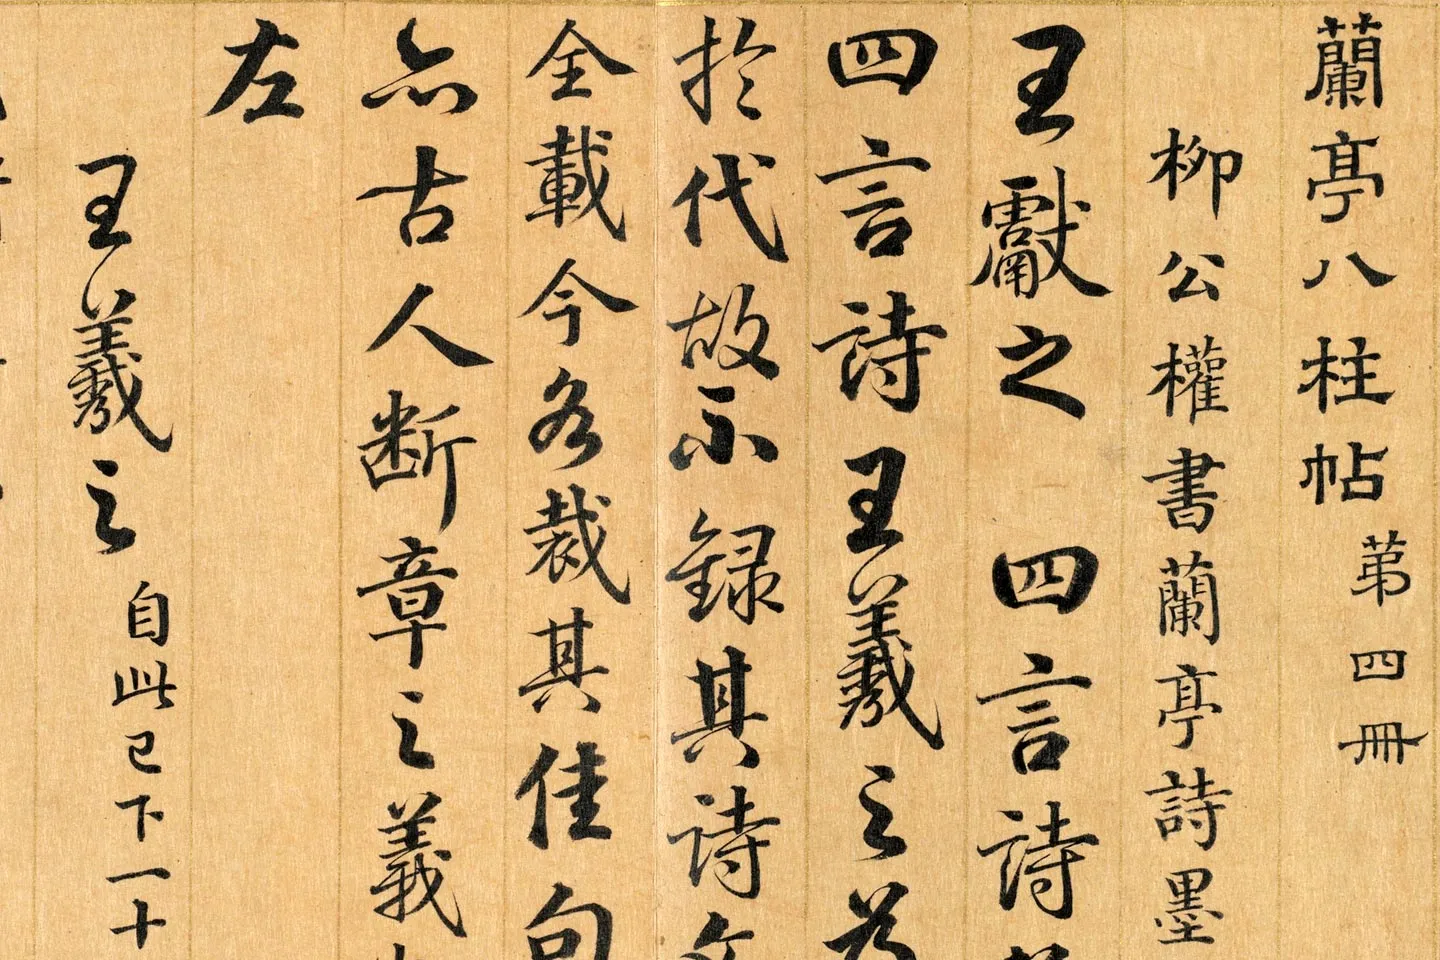 蘭亭八柱帖 第四冊
柳公權書蘭亭詩墨
王獻之 四言詩
四言詩王羲之為
於代故不録其詩文
全載今各裁其佳句
亦古人斷章之義也
左
王羲之 自此已下一十